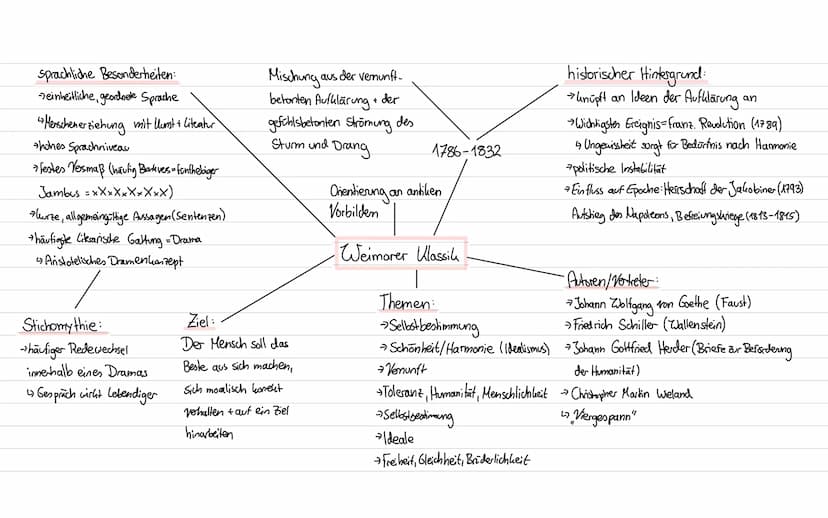 sprachliche Besonderheiten:
→einheitliche, geordnete Sprache
↳Menschenerziehung mit Kunst+Literatur
→hohes Sprachniveau
→festes Versmaß (häufig Blankvers=fünfhebiger
Jambus = xXxXxXxXxX)
→kurze, allgemeingültige Aussagen (Sentenzen)
→häufigste literarische Gattung=Drama
↳Aristotelisches Dramenkonzept
Stichomythie:
→häufiger Redewechsel
innerhalb eines Dramas
↳Gespräch wirkt lebendiger
Mischung aus der vernunft-
betonten Aufklärung + der
gefühlsbetonten Strömung des
Sturm und Drang
1786-1832
Orientierung an antiken
Vorbilden
Weimarer Klassik
Ziel:
Der Mensch soll das
Beste aus sich machen,
sich moralisch korrekt
verhalten + auf ein Ziel
hinarbeiten
Themen:
→Selbstbestimmung
→Schönheit/Harmonie (Idealismus)
→Vernunft
→Toleranz, Humanität, Menschlichkeit
→Selbstbestimmung
→Ideale
→Freiheit, Gleichheit, Brüderlichkeit
historischer Hintergrund:
→knüpft an Ideen der Aufklärung an
→Wichtigstes Ereignis=Franz. Revolution (1789)
↳Ungewissheit sorgt für Bedürfnis nach Harmonie
→politische Instabilität
→Einfluss auf Epoche: Herrschaft der Jakobiner (1793)
Aufstieg des Napoleons, Befreiungskriege (1813-1815)
Autoren/Vertreter:
→Johann Wolfgang von Goethe (Faust)
→Friedrich Schiller (Wallenstein)
→Johann Gottfried Herder (Briefe zur Beförderung
der Humanität)
→Christopher Martin Weland
↳„Viergespann"